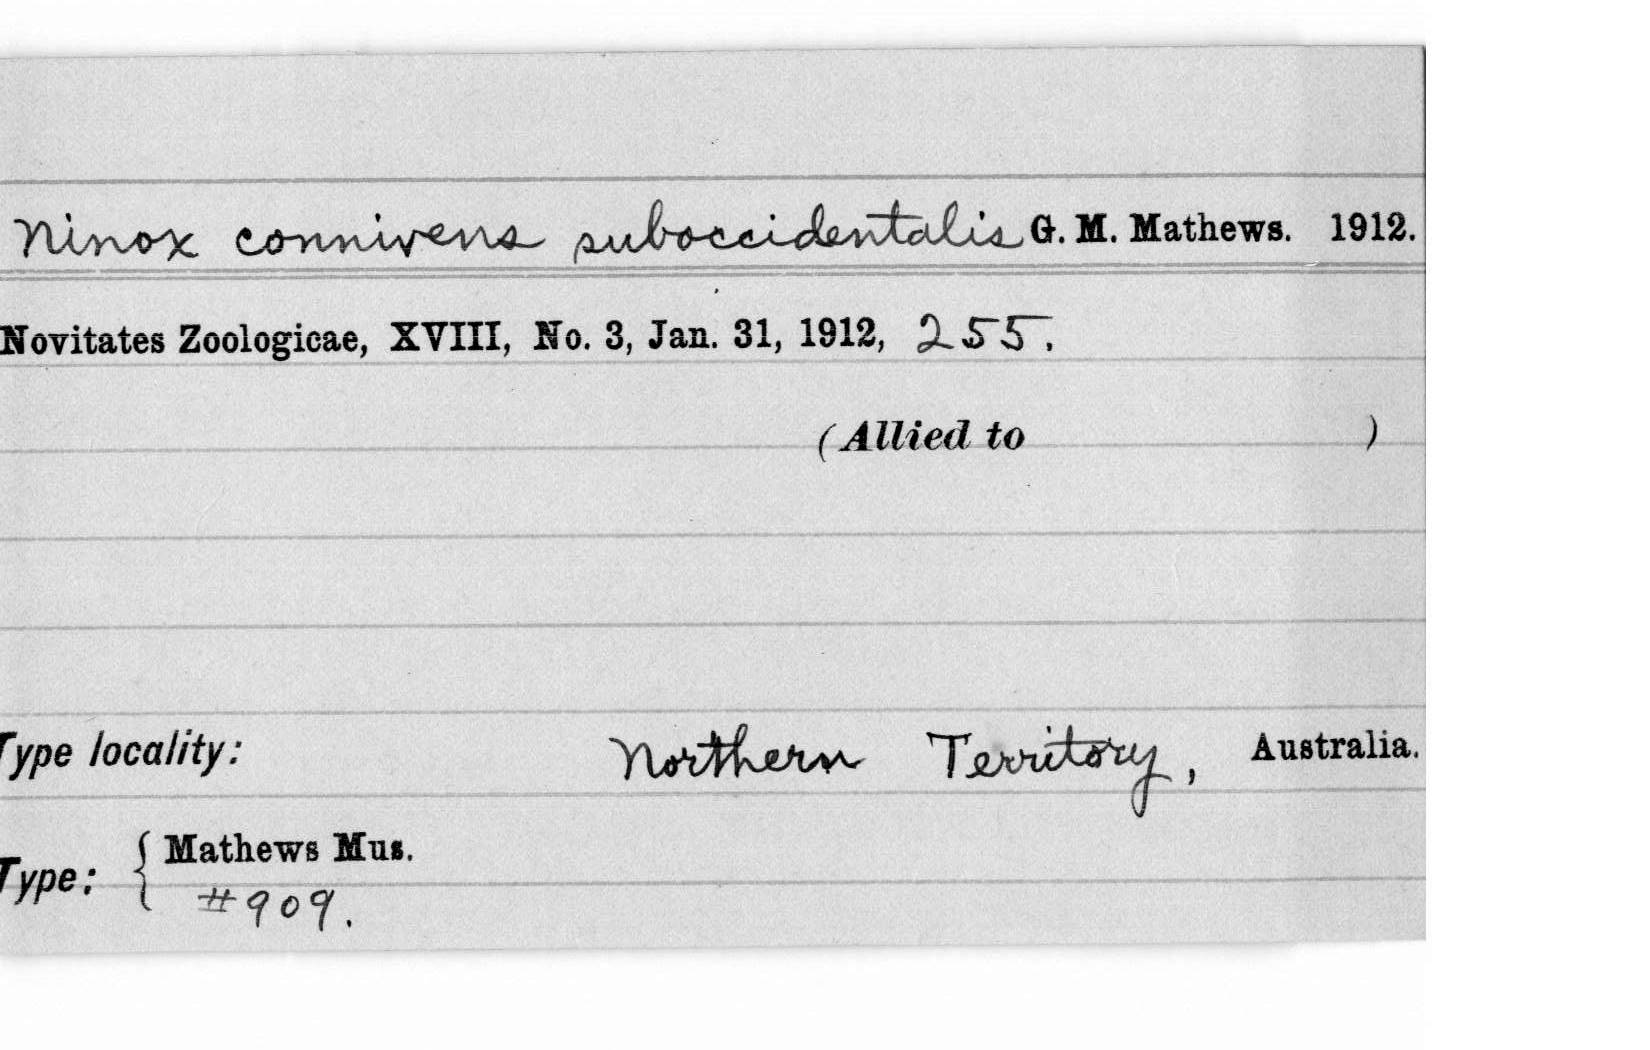 Ninox connivens suboccidentalis G. M. Mathews. 1912.
Novitates Zoologicae, XVIII, No. 3, Jan. 31, 1912, 255.
(Allied to )
Type locality: Northern Territory, Australia.
Type: { Mathews Mus.
#909.